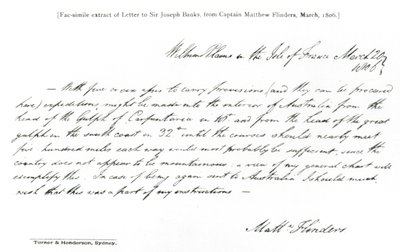 [Fac-simile extract of Letter to Sir Joseph Banks, from Captain Matthew Flinders, March, 1806.]
Wilhems Plains in the Isle of France March 20
1806.
— With five or six asses to carry provisions (and they can be procured
here) expeditions might be made into the interior of Australia from the
head of the Gulph of Carpentaria in 18° and from the head of the great
gulph on the south coast in 32° until the courses should nearly meet
five hundred miles each way would most probably be sufficient, since the
country does not appear to be mountainous. a view of my general chart will
exemplify this. In case of being again sent to Australia I should much
wish that this was a part of my instructions —
Matt.w Flinders
Turner & Henderson, Sydney.